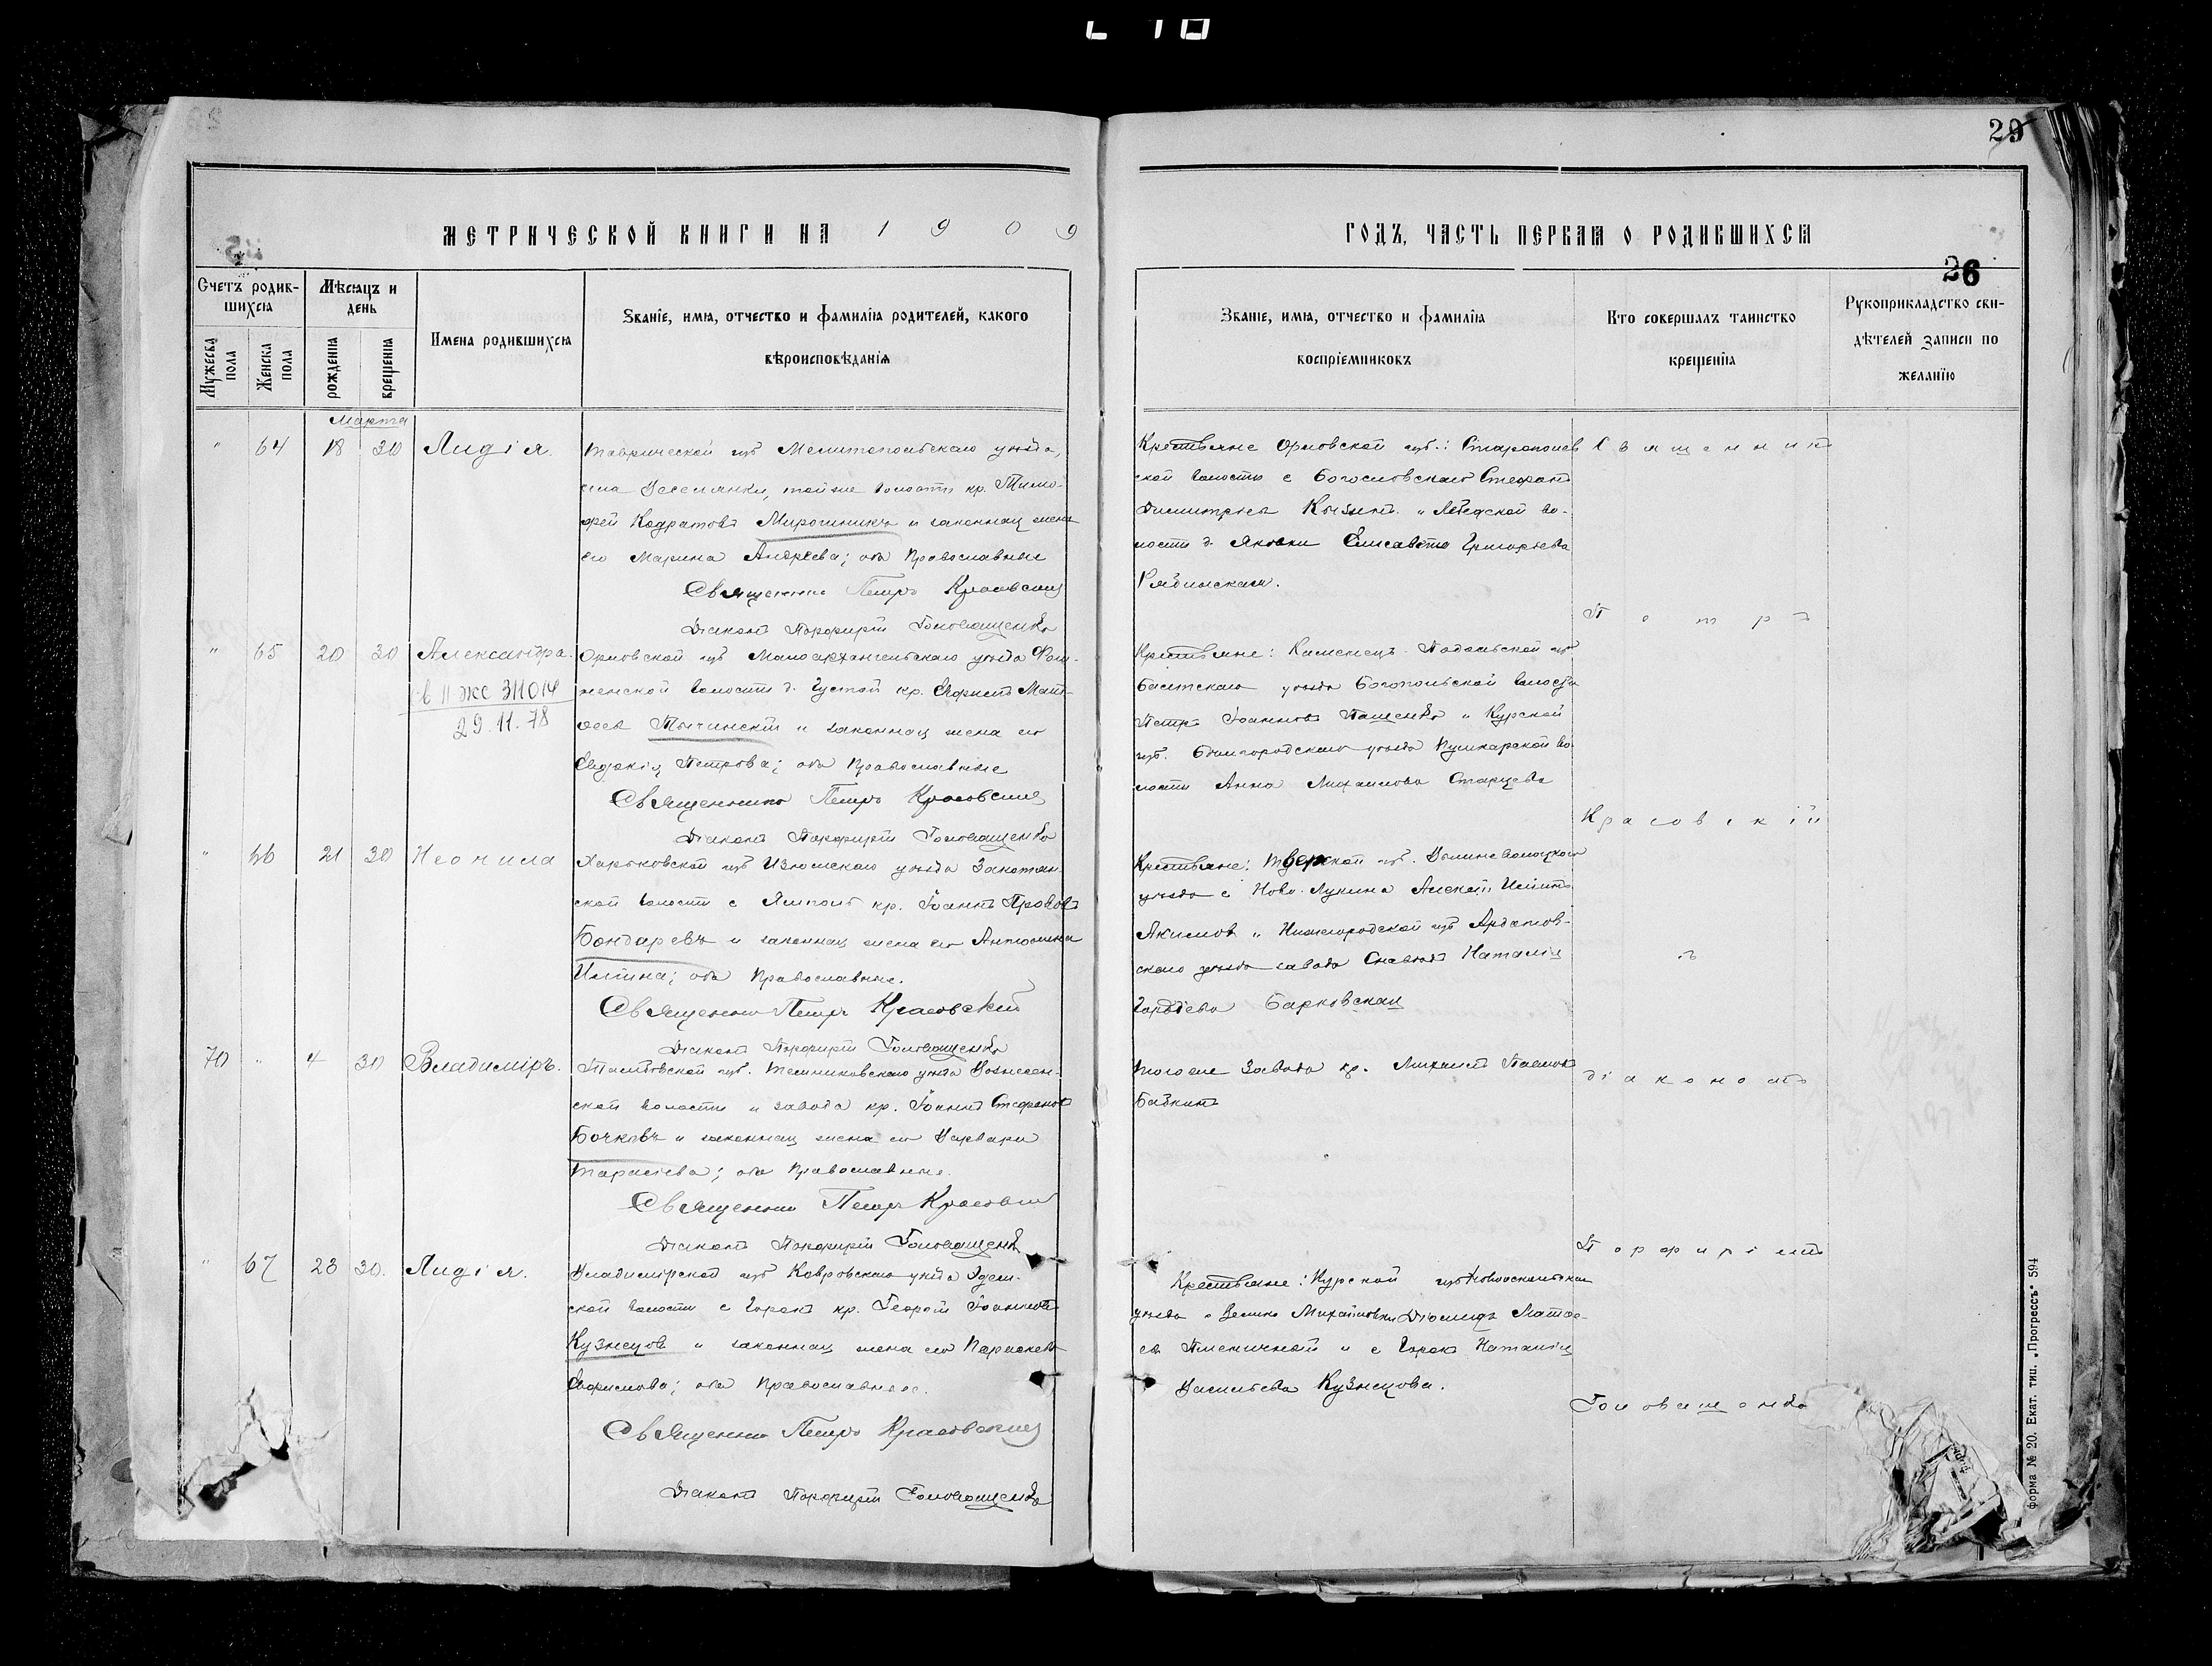 29
МЕТРИЧЕСКОЙ КНИГИ НА 1909
ГОДЪ, ЧАСТЬ ПЕРВАЯ О РОДИВШИХСЯ
26
Счетъ родив-
шихся
Мужеска
пола
Женска
пола
Мѣсяцъ и
день
рожденія
крещенія
Имена родившихся
Званіе, имя, отчество и фамилія родителей, какого
вѣроисповѣданія
Званіе, имя, отчество и фамилія
воспріемниковъ
Кто совершалъ таинство
крещенія
Рукоприкладство сви-
дѣтелей записи по
желанію
Марта
" 64 18 30 Лидія.
Таврической губ Мелитопольскаго уѣзда,
села Веселянки, той же волости кр. Тимо-
фей Кодратовъ Мирошникъ и законная жена
его Марина Андреева; оба Православные
Священникъ Петръ Красовскій
Діаконъ Порфирій Головащенко
Крестьяне Орловской губ.:
ской волости с Богословскаго Стефанъ
Димитріевъ и во-
лости д. Яковки Елисавета Григорьева
Рябинская.
" 65 20 30 Александра.
в II ЖС 311014
29.11.78
Орловской губ Малоархангельскаго уѣзда
волости д. Густой кр. Мат-
ѳеевъ Тычинскій и законная жена его
Евдокія Петрова; оба Православные
Священникъ Петръ Красовскій
Діаконъ Порфирій Головащенко
Крестьяне: Каменецъ-Подольской губ
Балтскаго уѣзда Богопольской волости
Петръ Іоанновъ Пащенко и Курской
губ. Бѣлгородскаго уѣзда Пушкарской во-
лости Анна Михаилова Старцева
" 66 21 30 Неонила
Харьковской губ Изюмскаго уѣзда
ской волости с Ямполь кр. Іоаннъ
Бондаревъ и законная жена его Антонина
Ильина; оба Православные.
Священникъ Петръ Красовскій
Діаконъ Порфирій Головащенко
Крестьяне: Тверской губ. Вышневолоцкаго
уѣзда с Ново-Лукина Алексѣй
Акимовъ и Нижегородской губ Ардатов-
скаго уѣзда завода Наталія
Гордѣева Барковская
70 " 4 30 Владиміръ.
Тамбовской губ. Темниковскаго уѣзда Вознесен-
ской волости и завода кр. Іоаннъ Стефановъ
Бочковъ и законная жена его Варвара
Тарасіева; оба Православные.
Священникъ Петръ Красовскій
Діаконъ Порфирій Головащенко
Того же Завода кр. Михаилъ Павловъ
Бабкинъ
" 67 23 30. Лидія.
Владимірской губ Ковровскаго уѣзда
ской волости с Горокъ кр. Георгій Іоанновъ
Кузнецовъ и законная жена его Параскева
Ефремова; оба Православные.
Священникъ Петръ Красовскій
Діаконъ Порфирій Головащенко
Крестьяне: Курской губ Новооскольскаго
уѣзда с Велико Михайловки Діомидъ Матѳе-
евъ Пшеничный и с Горокъ Наталія
Васильева Кузнецова.
Священникъ
Петръ
Красовскій
съ
діакономъ
Порфиріемъ
Головащенко
Форма № 20. Екат. тип. „Прогрессъ" 594